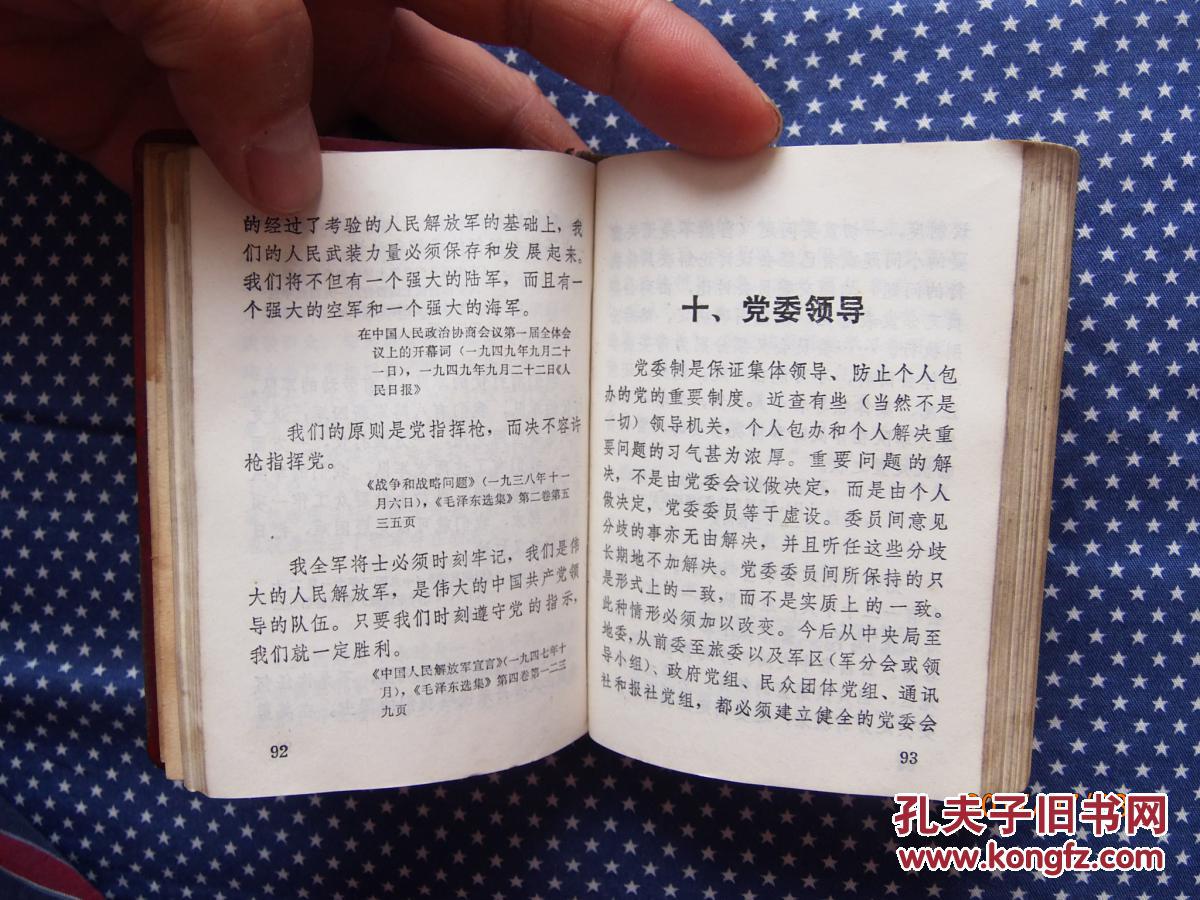 的经过了考验的人民解放军的基础上，我
们的人民武装力量必须保存和发展起来。
我们将不但有一个强大的陆军，而且有一
个强大的空军和一个强大的海军。
在中国人民政治协商会议第一届全体会
议上的开幕词（一九四九年九月二十
一日），一九四九年九月二十二日《人
民日报》
我们的原则是党指挥枪，而决不容许
枪指挥党。
《战争和战略问题》（一九三八年十一
月六日），《毛泽东选集》第二卷第五
三五页
我全军将士必须时刻牢记，我们是伟
大的人民解放军，是伟大的中国共产党领
导的队伍。只要我们时刻遵守党的指示，
我们就一定胜利。
《中国人民解放军宣言》（一九四七年十
月），《毛泽东选集》第四卷第一二三
九页
92
十、党委领导
党委制是保证集体领导、防止个人包
办的党的重要制度。近查有些（当然不是
一切）领导机关，个人包办和个人解决重
要问题的习气甚为浓厚。重要问题的解
决，不是由党委会议做决定，而是由个人
做决定，党委委员等于虚设。委员间意见
分歧的事亦无由解决，并且听任这些分歧
长期地不加解决。党委委员间所保持的只
是形式上的一致，而不是实质上的一致。
此种情形必须加以改变。今后从中央局至
地委，从前委至旅委以及军区（军分会或领
导小组）、政府党组、民众团体党组、通讯
社和报社党组，都必须建立健全的党委会
93
孔夫子旧书网
www.kongfz.com